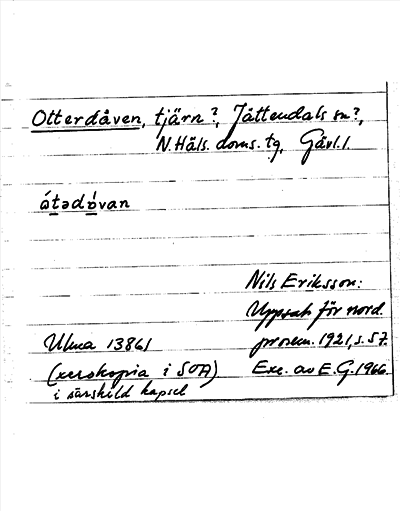 Otterdåven, tjärn?, Jättendals sn?,
N. Häls. doms. tg, Gävl. l.
ó̱tədó̱van
Nils Eriksson:
Uppsats för nord.
prosem. 1921, s. 57.
Ulma 13861
(xerokopia i SOA)
i särskild kapsel
Exc. av E. G. 1966